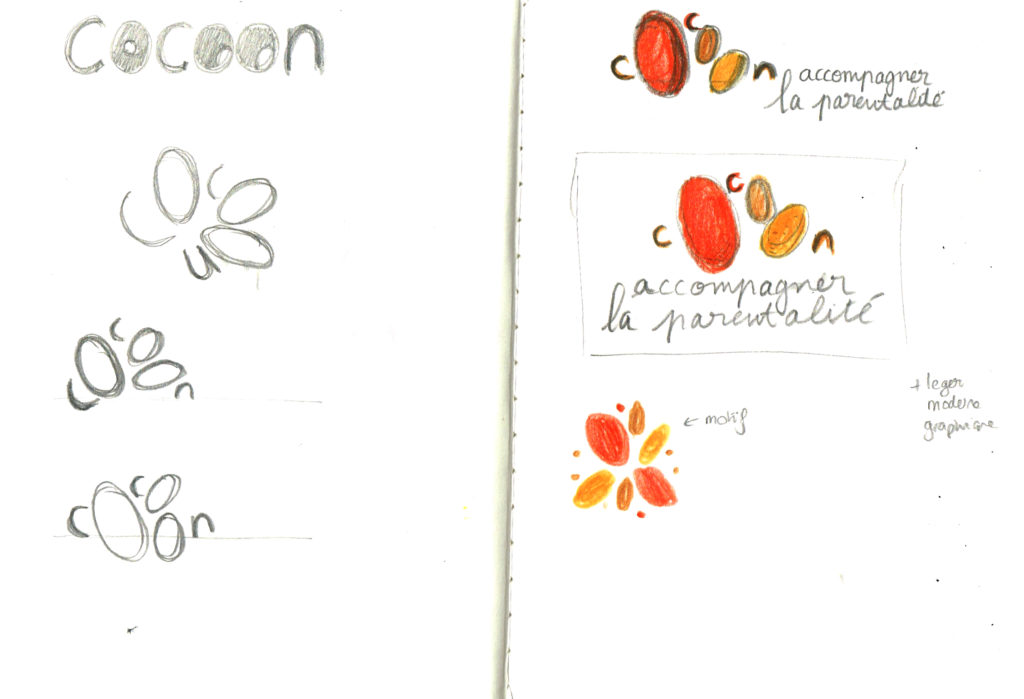 cocoon
cocoon
cocoon
cocoon
cocoon
accompagner
la parentalité
cocoon
accompagner
la parentalité
← motif
+ leger
moderne
graphique